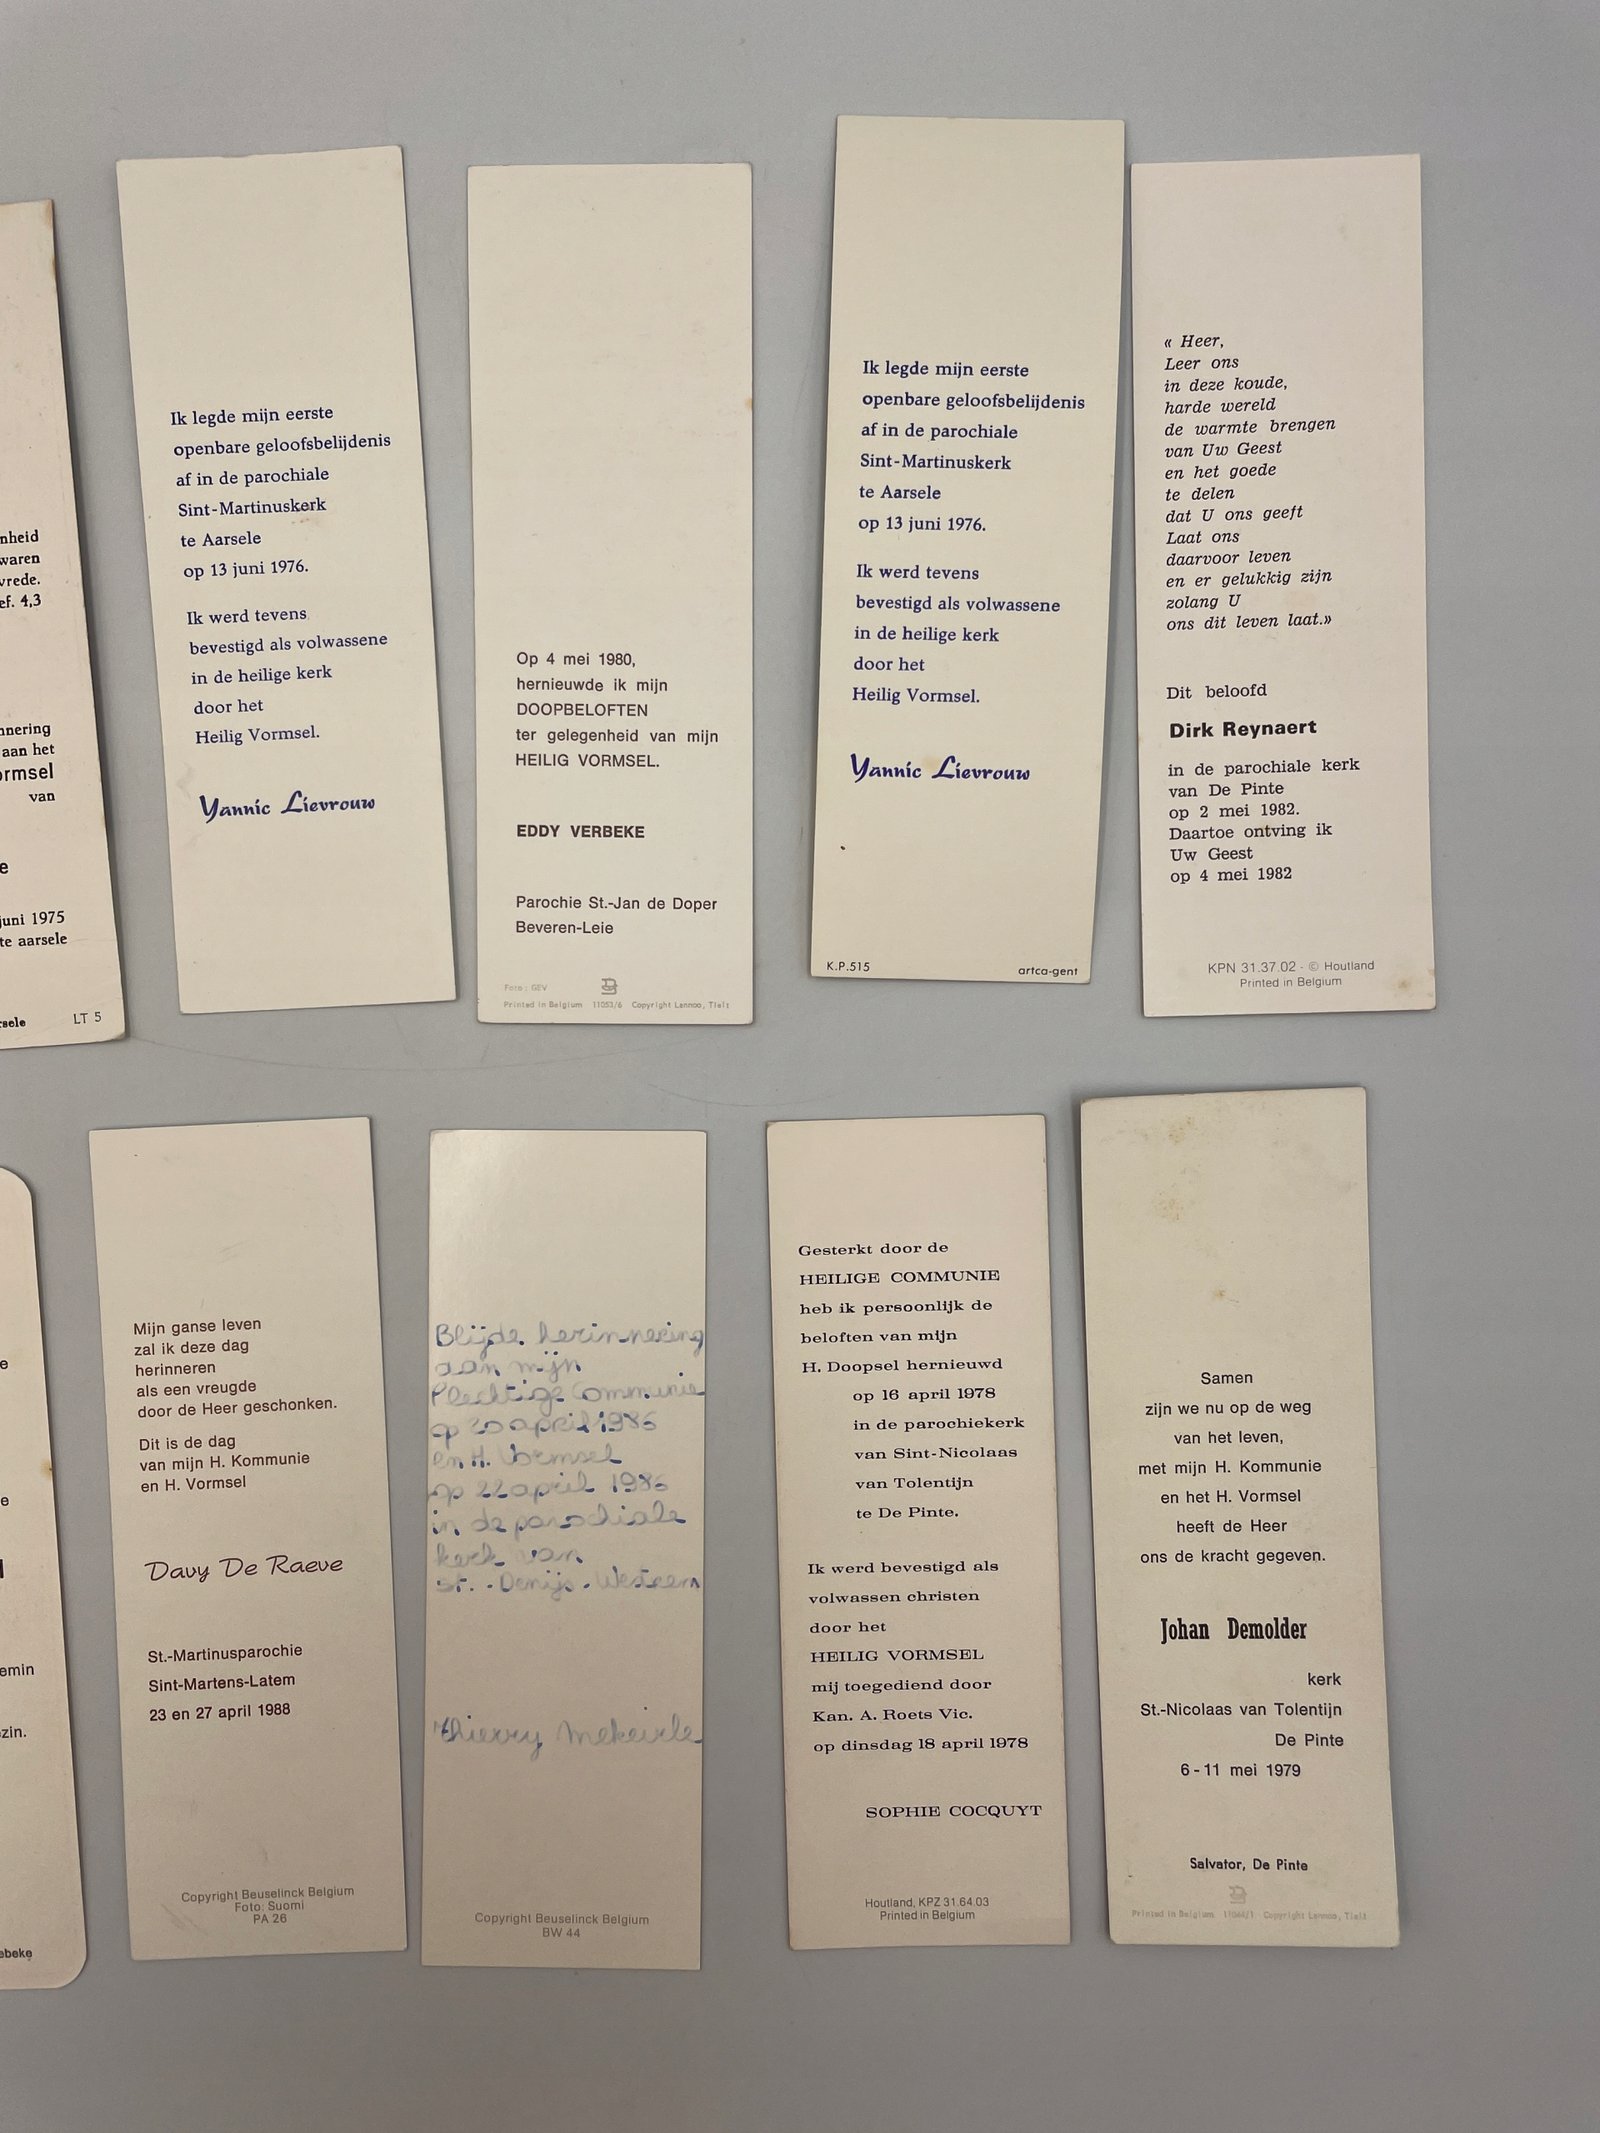 nheid
waren
vrede.
ef. 4,3
nnering
aan het
ormsel
van
e
juni 1975
te aarsele
rsele LT 5
Ik legde mijn eerste
openbare geloofsbelijdenis
af in de parochiale
Sint-Martinuskerk
te Aarsele
op 13 juni 1976.
Ik werd tevens
bevestigd als volwassene
in de heilige kerk
door het
Heilig Vormsel.
Yannic Lievrouw
Op 4 mei 1980,
hernieuwde ik mijn
DOOPBELOFTEN
ter gelegenheid van mijn
HEILIG VORMSEL.
EDDY VERBEKE
Parochie St.-Jan de Doper
Beveren-Leie
Foto: GEV
Printed in Belgium 11053/6 Copyright Lannoo, Tielt
Ik legde mijn eerste
openbare geloofsbelijdenis
af in de parochiale
Sint-Martinuskerk
te Aarsele
op 13 juni 1976.
Ik werd tevens
bevestigd als volwassene
in de heilige kerk
door het
Heilig Vormsel.
Yannic Lievrouw
K.P.515 artca-gent
« Heer,
Leer ons
in deze koude,
harde wereld
de warmte brengen
van Uw Geest
en het goede
te delen
dat U ons geeft
Laat ons
daarvoor leven
en er gelukkig zijn
zolang U
ons dit leven laat.»
Dit beloofd
Dirk Reynaert
in de parochiale kerk
van De Pinte
op 2 mei 1982.
Daartoe ontving ik
Uw Geest
op 4 mei 1982
KPN 31.37.02 - © Houtland
Printed in Belgium
e
e
emin
zin.
ebeke
Mijn ganse leven
zal ik deze dag
herinneren
als een vreugde
door de Heer geschonken.
Dit is de dag
van mijn H. Kommunie
en H. Vormsel
Davy De Raeve
St.-Martinusparochie
Sint-Martens-Latem
23 en 27 april 1988
Copyright Beuselinck Belgium
Foto: Suomi
PA 26
Blijde herinnering
aan mijn
Plechtige Communie
op 20 april 1986
en H. Vormsel
op 22 april 1986
in de parochiale
kerk van
St.-Denijs-Westrem
Thierry
Copyright Beuselinck Belgium
BW 44
Gesterkt door de
HEILIGE COMMUNIE
heb ik persoonlijk de
beloften van mijn
H. Doopsel hernieuwd
op 16 april 1978
in de parochiekerk
van Sint-Nicolaas
van Tolentijn
te De Pinte.
Ik werd bevestigd als
volwassen christen
door het
HEILIG VORMSEL
mij toegediend door
Kan. A. Roets Vic.
op dinsdag 18 april 1978
SOPHIE COCQUYT
Houtland, KPZ 31.64.03
Printed in Belgium
Samen
zijn we nu op de weg
van het leven,
met mijn H. Kommunie
en het H. Vormsel
heeft de Heer
ons de kracht gegeven.
Johan Demolder
kerk
St.-Nicolaas van Tolentijn
De Pinte
6 - 11 mei 1979
Salvator, De Pinte
Printed in Belgium Copyright Lannoo, Tielt